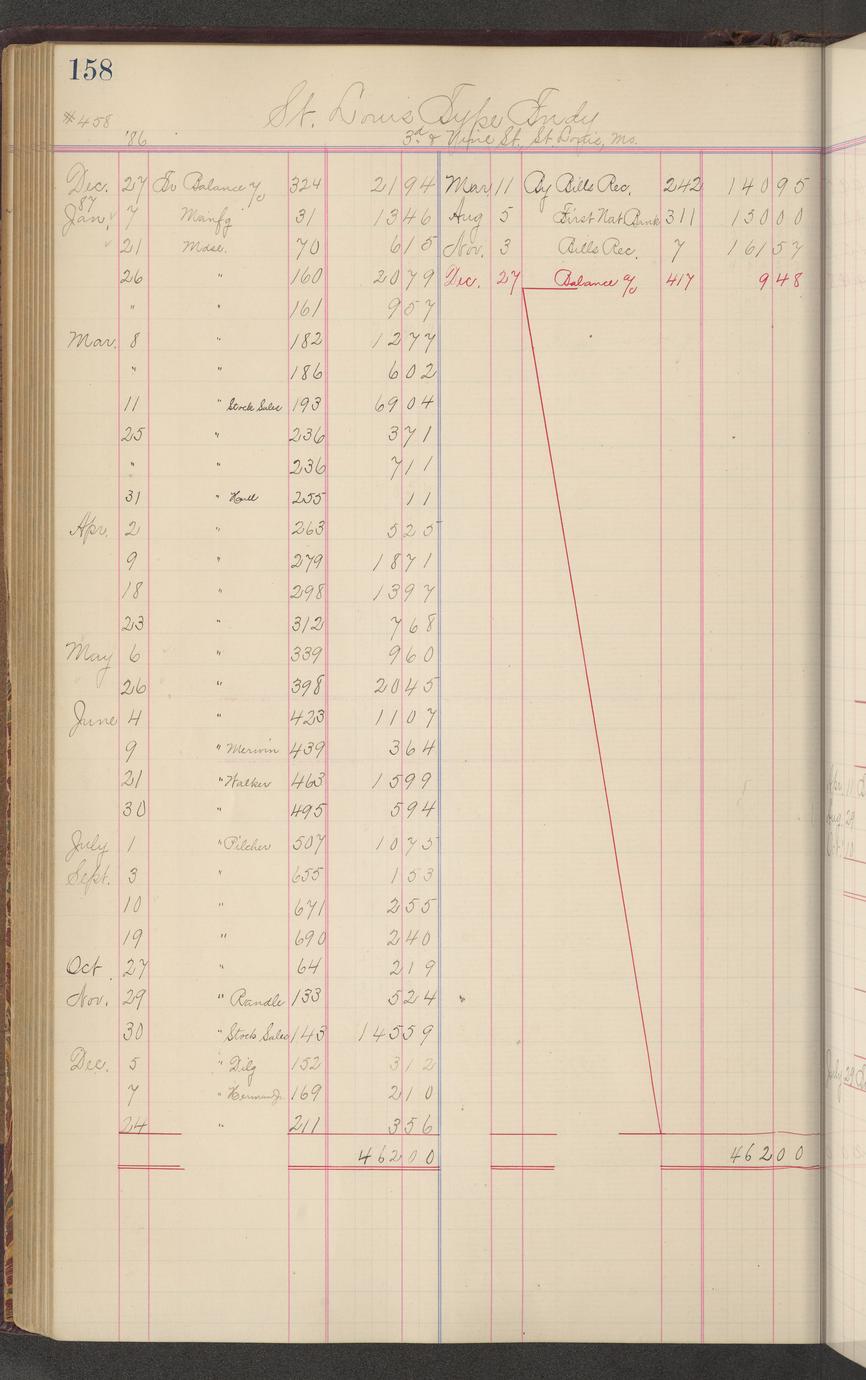 158
St. Louis Type Fndy
#458
'86 3rd & Vine St., St. Louis, Mo.
Dec. 27 To Balance 324 2194 Mar 11 By Bills Rec. 242 14095
87
Jan. 7 Manfg 31 1346 Aug 5 First Nat Bank 311 15000
21 Mdse. 70 615 Nov. 3 Bills Rec. 7 16157
26 " 160 2079 Dec. 27 Balance 417 948
" " 161 957
Mar. 8 " 182 1277
" " 186 602
11 " Stock Sales 193 6904
25 " 236 371
" " 236 711
31 " 255 11
Apr. 2 " 263 525
9 " 279 1871
18 " 298 1397
23 " 312 768
May 6 " 339 960
26 " 398 2045
June 4 " 423 1107
9 " Merwin 439 364
21 " Walker 463 1599
30 " 495 594
July 1 " Pilcher 507 1075
Sept. 3 " 655 153
10 " 671 255
19 " 690 240
Oct. 27 " 64 219
Nov. 29 " Randle 133 524
30 " Stock Sales 143 14559
Dec. 5 " Dilg 152 312
7 " 169 210
24 " 211 356
46200 46200